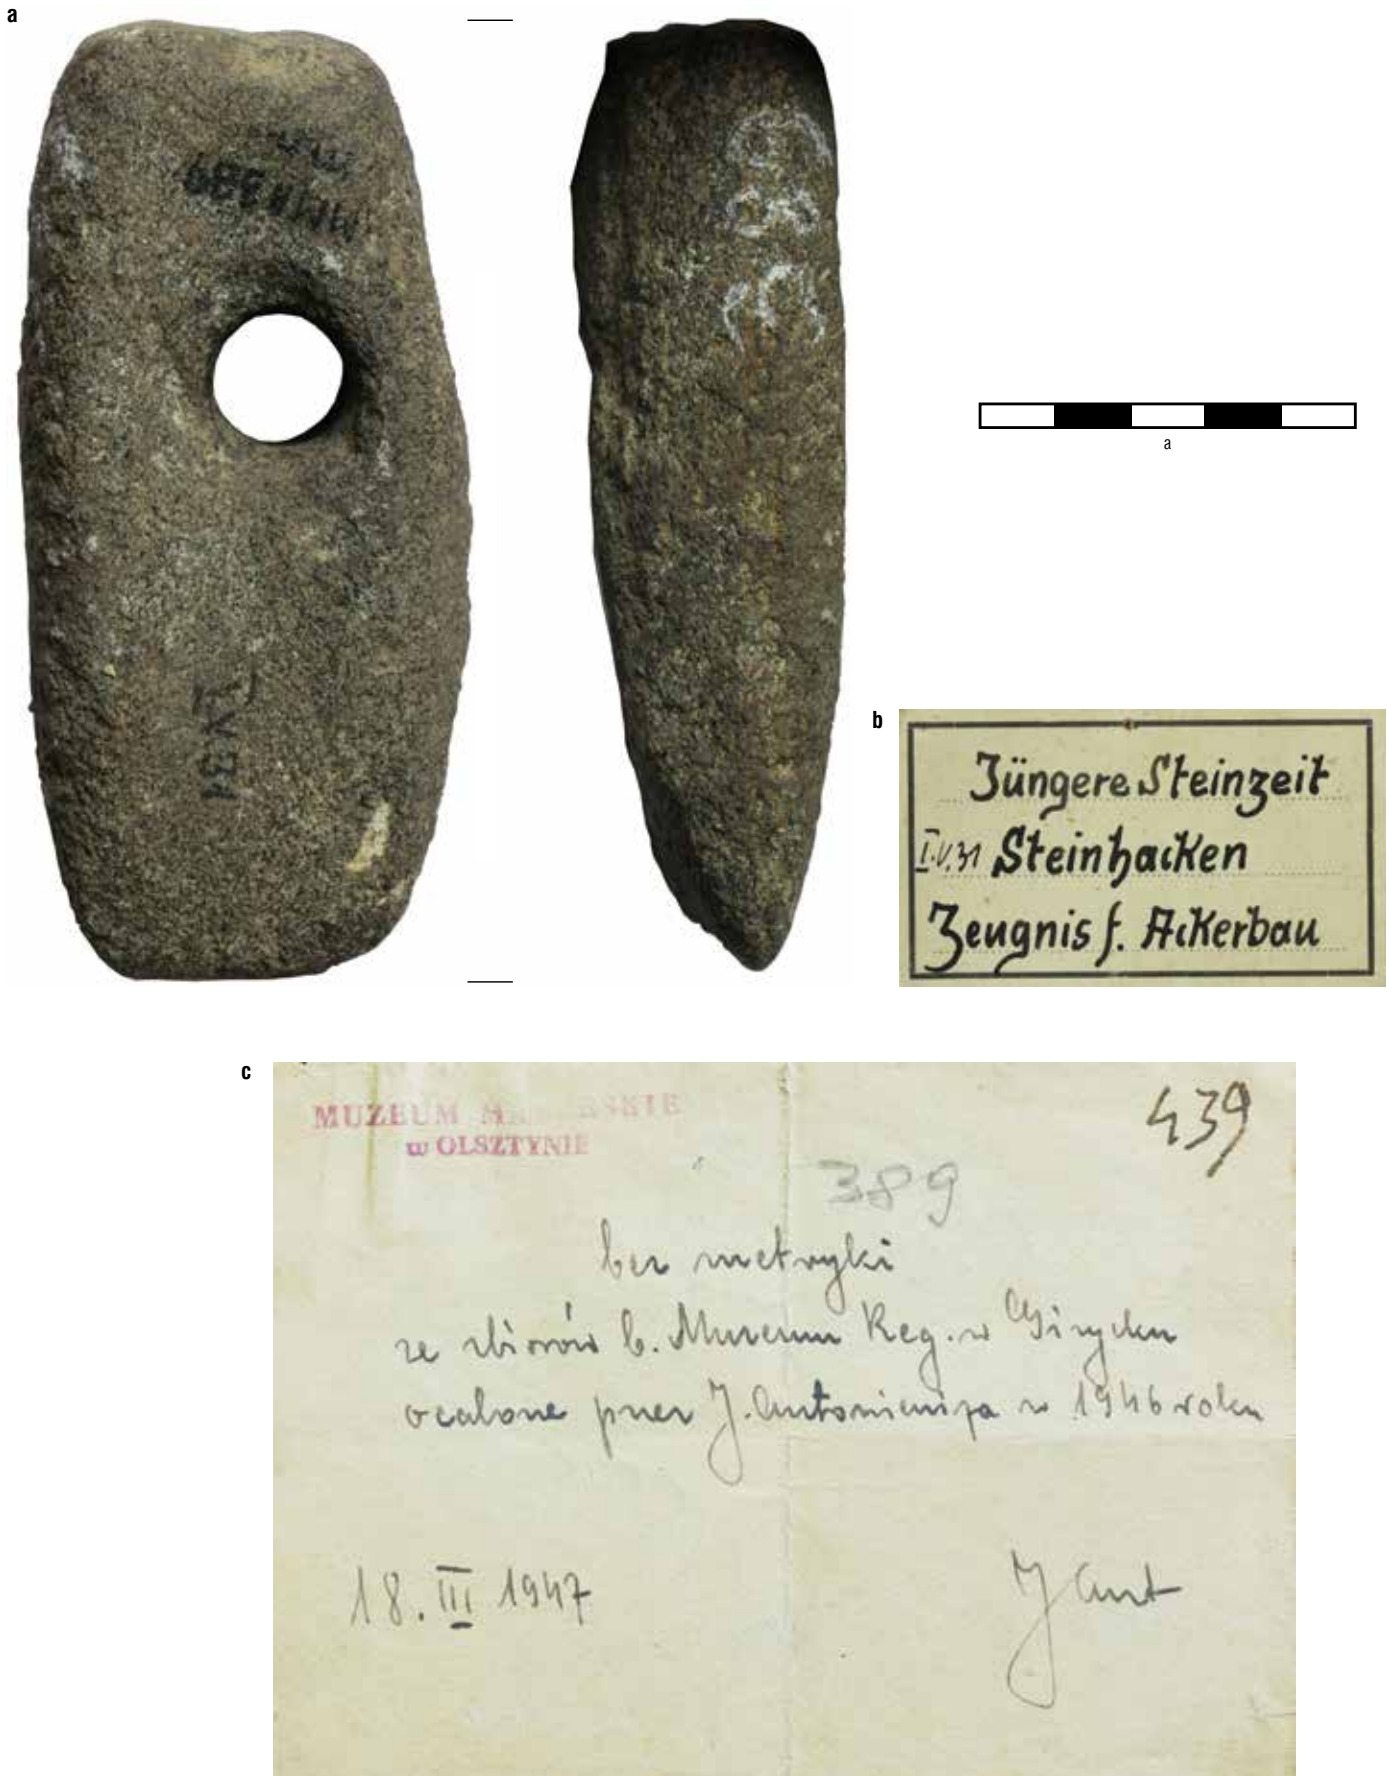 a
389
a
b
Jüngere Steinzeit
I.V.31 Steinhacken
Zeugnis f. Ackerbau
c
MUZEUM
w OLSZTYNIE
439
389
bez metryki
ze zbiorów b. Muzeum Reg. w Giżycku
ocalone przez J. Antoniewicza w 1946 roku
18. III 1947
J Ant